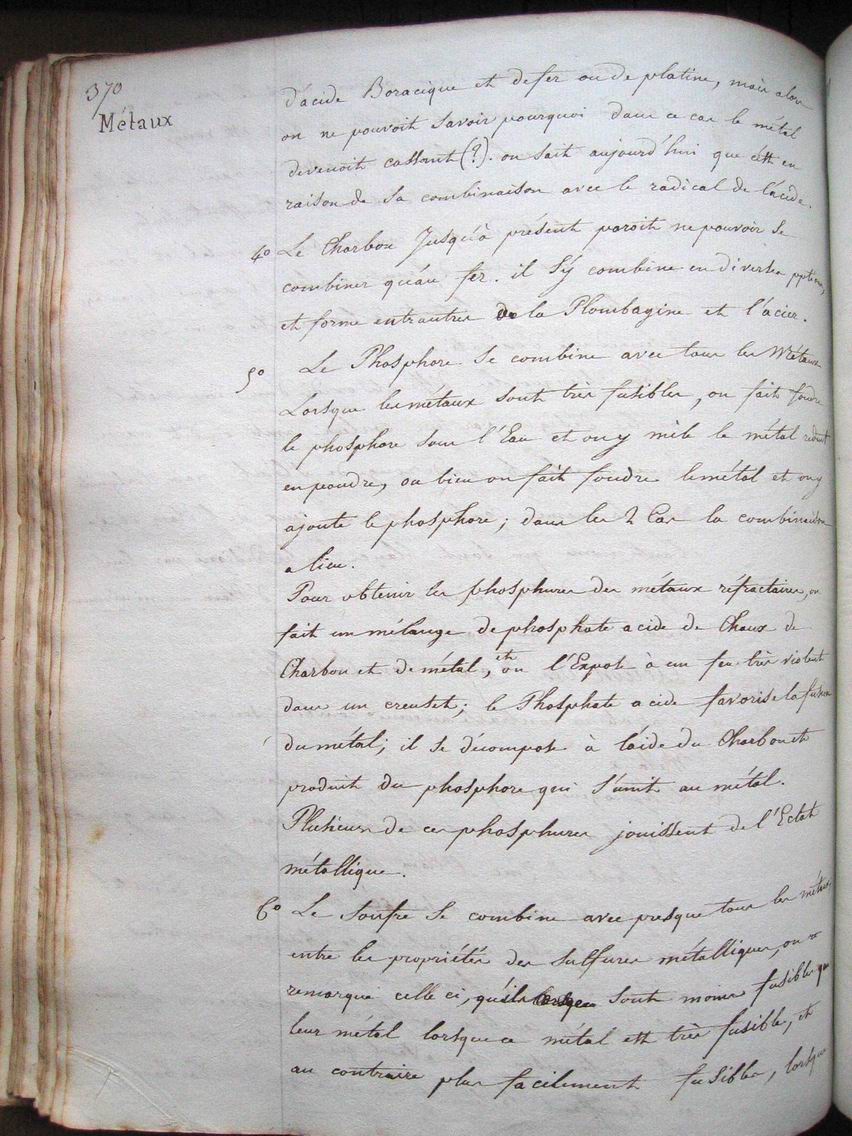 370
Métaux
d'acide Boracique et de fer ou de platine, mais alors
on ne pouvoit savoir pourquoi dans ce cas le métal
devenoit cassant (?). on sait aujourd'hui que c'est en
raison de sa combinaison avec le radical de l'acide.
4o Le Charbon Jusqu'à présent paroit ne pouvoir se
combiner qu'au fer. il s'y combine en diverses pptions,
et forme entrautres de la Plombagine et l'acier.
5o Le Phosphore se combine avec tous les Métaux
Lorsque les métaux sont très fusibles, on fait fondre
le phosphore sous l'Eau et on y mêle le métal réduit
en poudre, ou bien on fait fondre le métal et on y
ajoute le phosphore; dans les 2 Cas la combinaison
a lieu.
Pour obtenir les phosphures des métaux réfractaires, on
fait un mélange de phosphate acide de Chaux de
Charbon et de métal, et on l'Expose à un feu très violent
dans un creuset; le Phosphate acide favorise la fusion
du métal; il se décompose à l'aide du Charbon et
produit du phosphore qui s'unit au métal.
Plusieurs de ces phosphures jouissent de l'Eclat
métallique.
6o Le soufre se combine avec presque tous les métaux,
entre les propriétés des sulfures métalliques, on
remarque celle ci, qu'ils sont moins fusibles que
leur métal lorsque ce métal est très fusible, et
au contraire plus facilement fusibles, lorsque